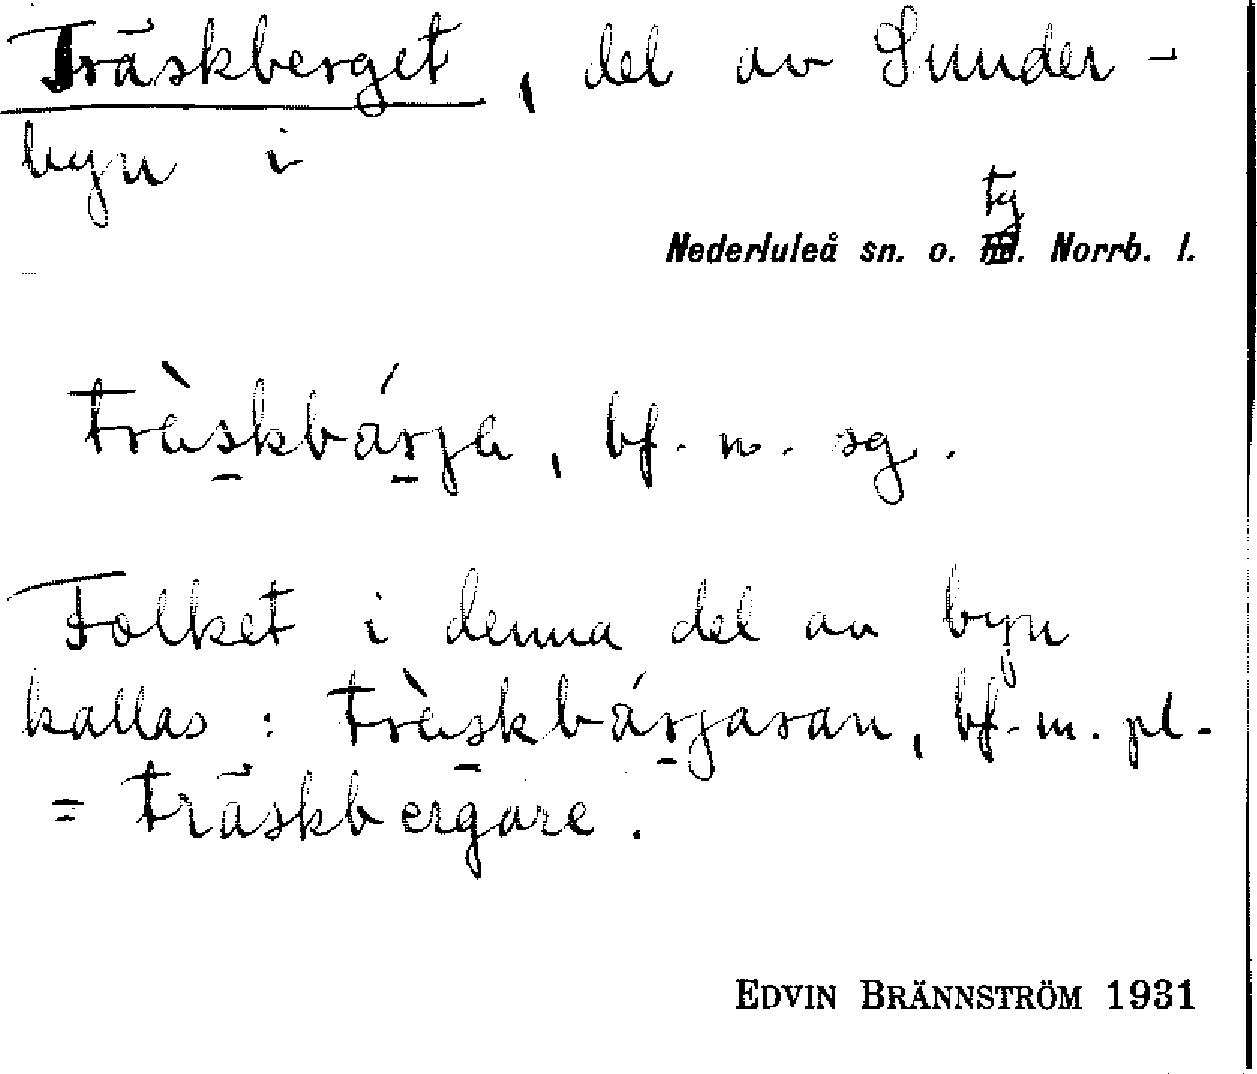 Träskberget, del av Sunder-
byn i
tg
Nederluleå sn. o. hd. Norrb. l.
trèskbárja, bf. n. sg.
Folket i denna del av byn
kallas: trèskbárjaran, bf. m. pl.
= träskbergare.
EDVIN BRÄNNSTRÖM 1931